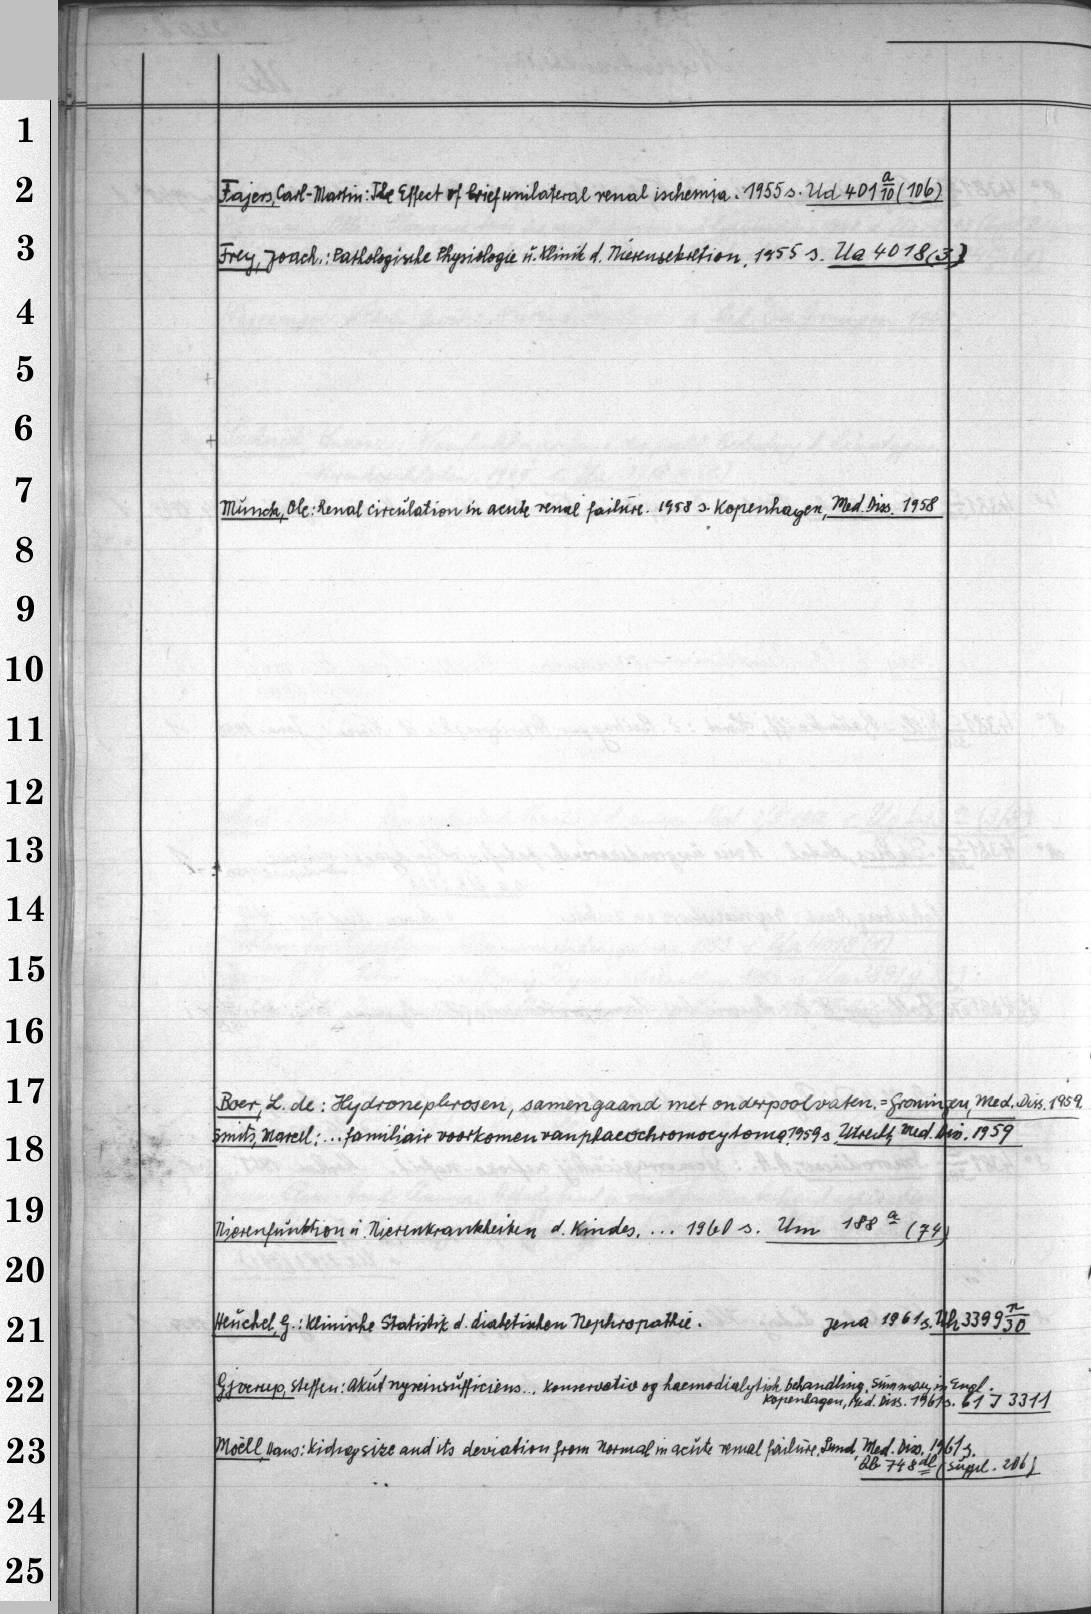 1
2
Fajers, Carl-Martin: The Effect of brief unilateral renal ischemia. 1955 s. Ud 401 a/10 (106)
3
Frey, Joach.: Pathologische Physiologie u. Klinik d. Nierensekretion. 1955 s. Ua 4018 (3)
4
5
6
7
Munck, Ole: Renal circulation in acute renal failure. 1958 s. Kopenhagen, Med. Diss. 1958
8
9
10
11
12
13
14
15
16
17
Boer, L. de: Hydronephrosen, samengaand met onderpoolvaten. = Groningen, Med. Diss. 1959
18
Smits, Marcell: ... familiair voorkomen van phaeochromocytoma 1959 s. Utrecht, Med. Dis. 1959
19
Nierenfunktion u. Nierenkrankheiten d. Kindes. ... 1960 s. Um 188 a (74)
20
21
Heuchel, G.: Klinische Statistik d. diabetischen Nephropathie. Jena 1961 s. Uh 3399 n/30
22
Gjørup, Steffen: Akut nyreinsufficiens... konservativ og haemodialytisk behandling. Summary in Engl.
Kopenhagen, Med. Diss. 1961 s. 61 J 3311
23
Moëll, Hans: Kidney size and its deviation from normal in acute renal failure. Lund, Med. Diss. 1961 s.
748 dl (Suppl. 206)
24
25